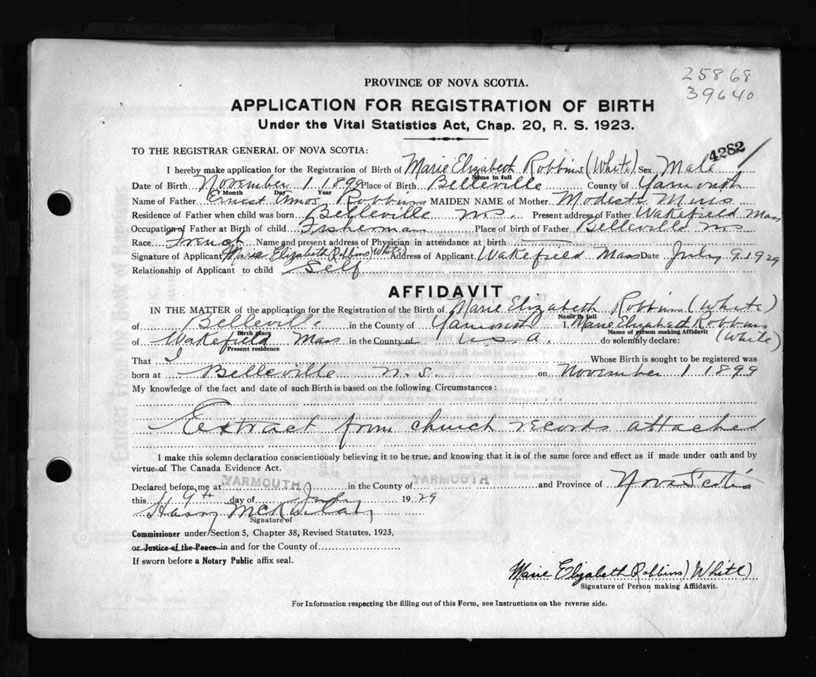 25868
39640
PROVINCE OF NOVA SCOTIA.
APPLICATION FOR REGISTRATION OF BIRTH
Under the Vital Statistics Act, Chap. 20, R. S. 1923.
4282
TO THE REGISTRAR GENERAL OF NOVA SCOTIA:
I hereby make application for the Registration of Birth of Marie Elizabeth Robbins (White) Sex Male
Name in full
Date of Birth November 1 1899 Place of Birth Belleville County of Yarmouth
Month Day Year
Name of Father Ernest Amos Robbins MAIDEN NAME of Mother Modeste Muis
Residence of Father when child was born Belleville N.S. Present address of Father Wakefield Mass
Occupation of Father at Birth of child Fisherman Place of birth of Father Belleville N.S.
Race French Name and present address of Physician in attendance at birth
Signature of Applicant Marie Elizabeth Robbins (White) Address of Applicant Wakefield Mass Date July 9 1929
Relationship of Applicant to child Self
AFFIDAVIT
IN THE MATTER of the application for the Registration of the Birth of Marie Elizabeth Robbins (White)
Name in full
of Belleville in the County of Yarmouth I, Marie Elizabeth Robbins (White)
Birth place Name of person making Affidavit
of Wakefield Mass in the County of U.S.A. do solemnly declare:
Present residence
That I Whose Birth is sought to be registered was
born at Belleville N.S. on November 1 1899
My knowledge of the fact and date of such Birth is based on the following Circumstances:
Extract from church records attached
I make this solemn declaration conscientiously believing it to be true, and knowing that it is of the same force and effect as if made under oath and by
virtue of The Canada Evidence Act.
Declared before me at YARMOUTH in the County of YARMOUTH and Province of Nova Scotia
this 9th day of July 1929
Harry
Signature of
Commissioner under Section 5, Chapter 38, Revised Statutes, 1923,
or Justice of the Peace in and for the County of
If sworn before a Notary Public affix seal.
Marie Elizabeth Robbins (White)
Signature of Person making Affidavit.
For Information respecting the filling out of this Form, see Instructions on the reverse side.